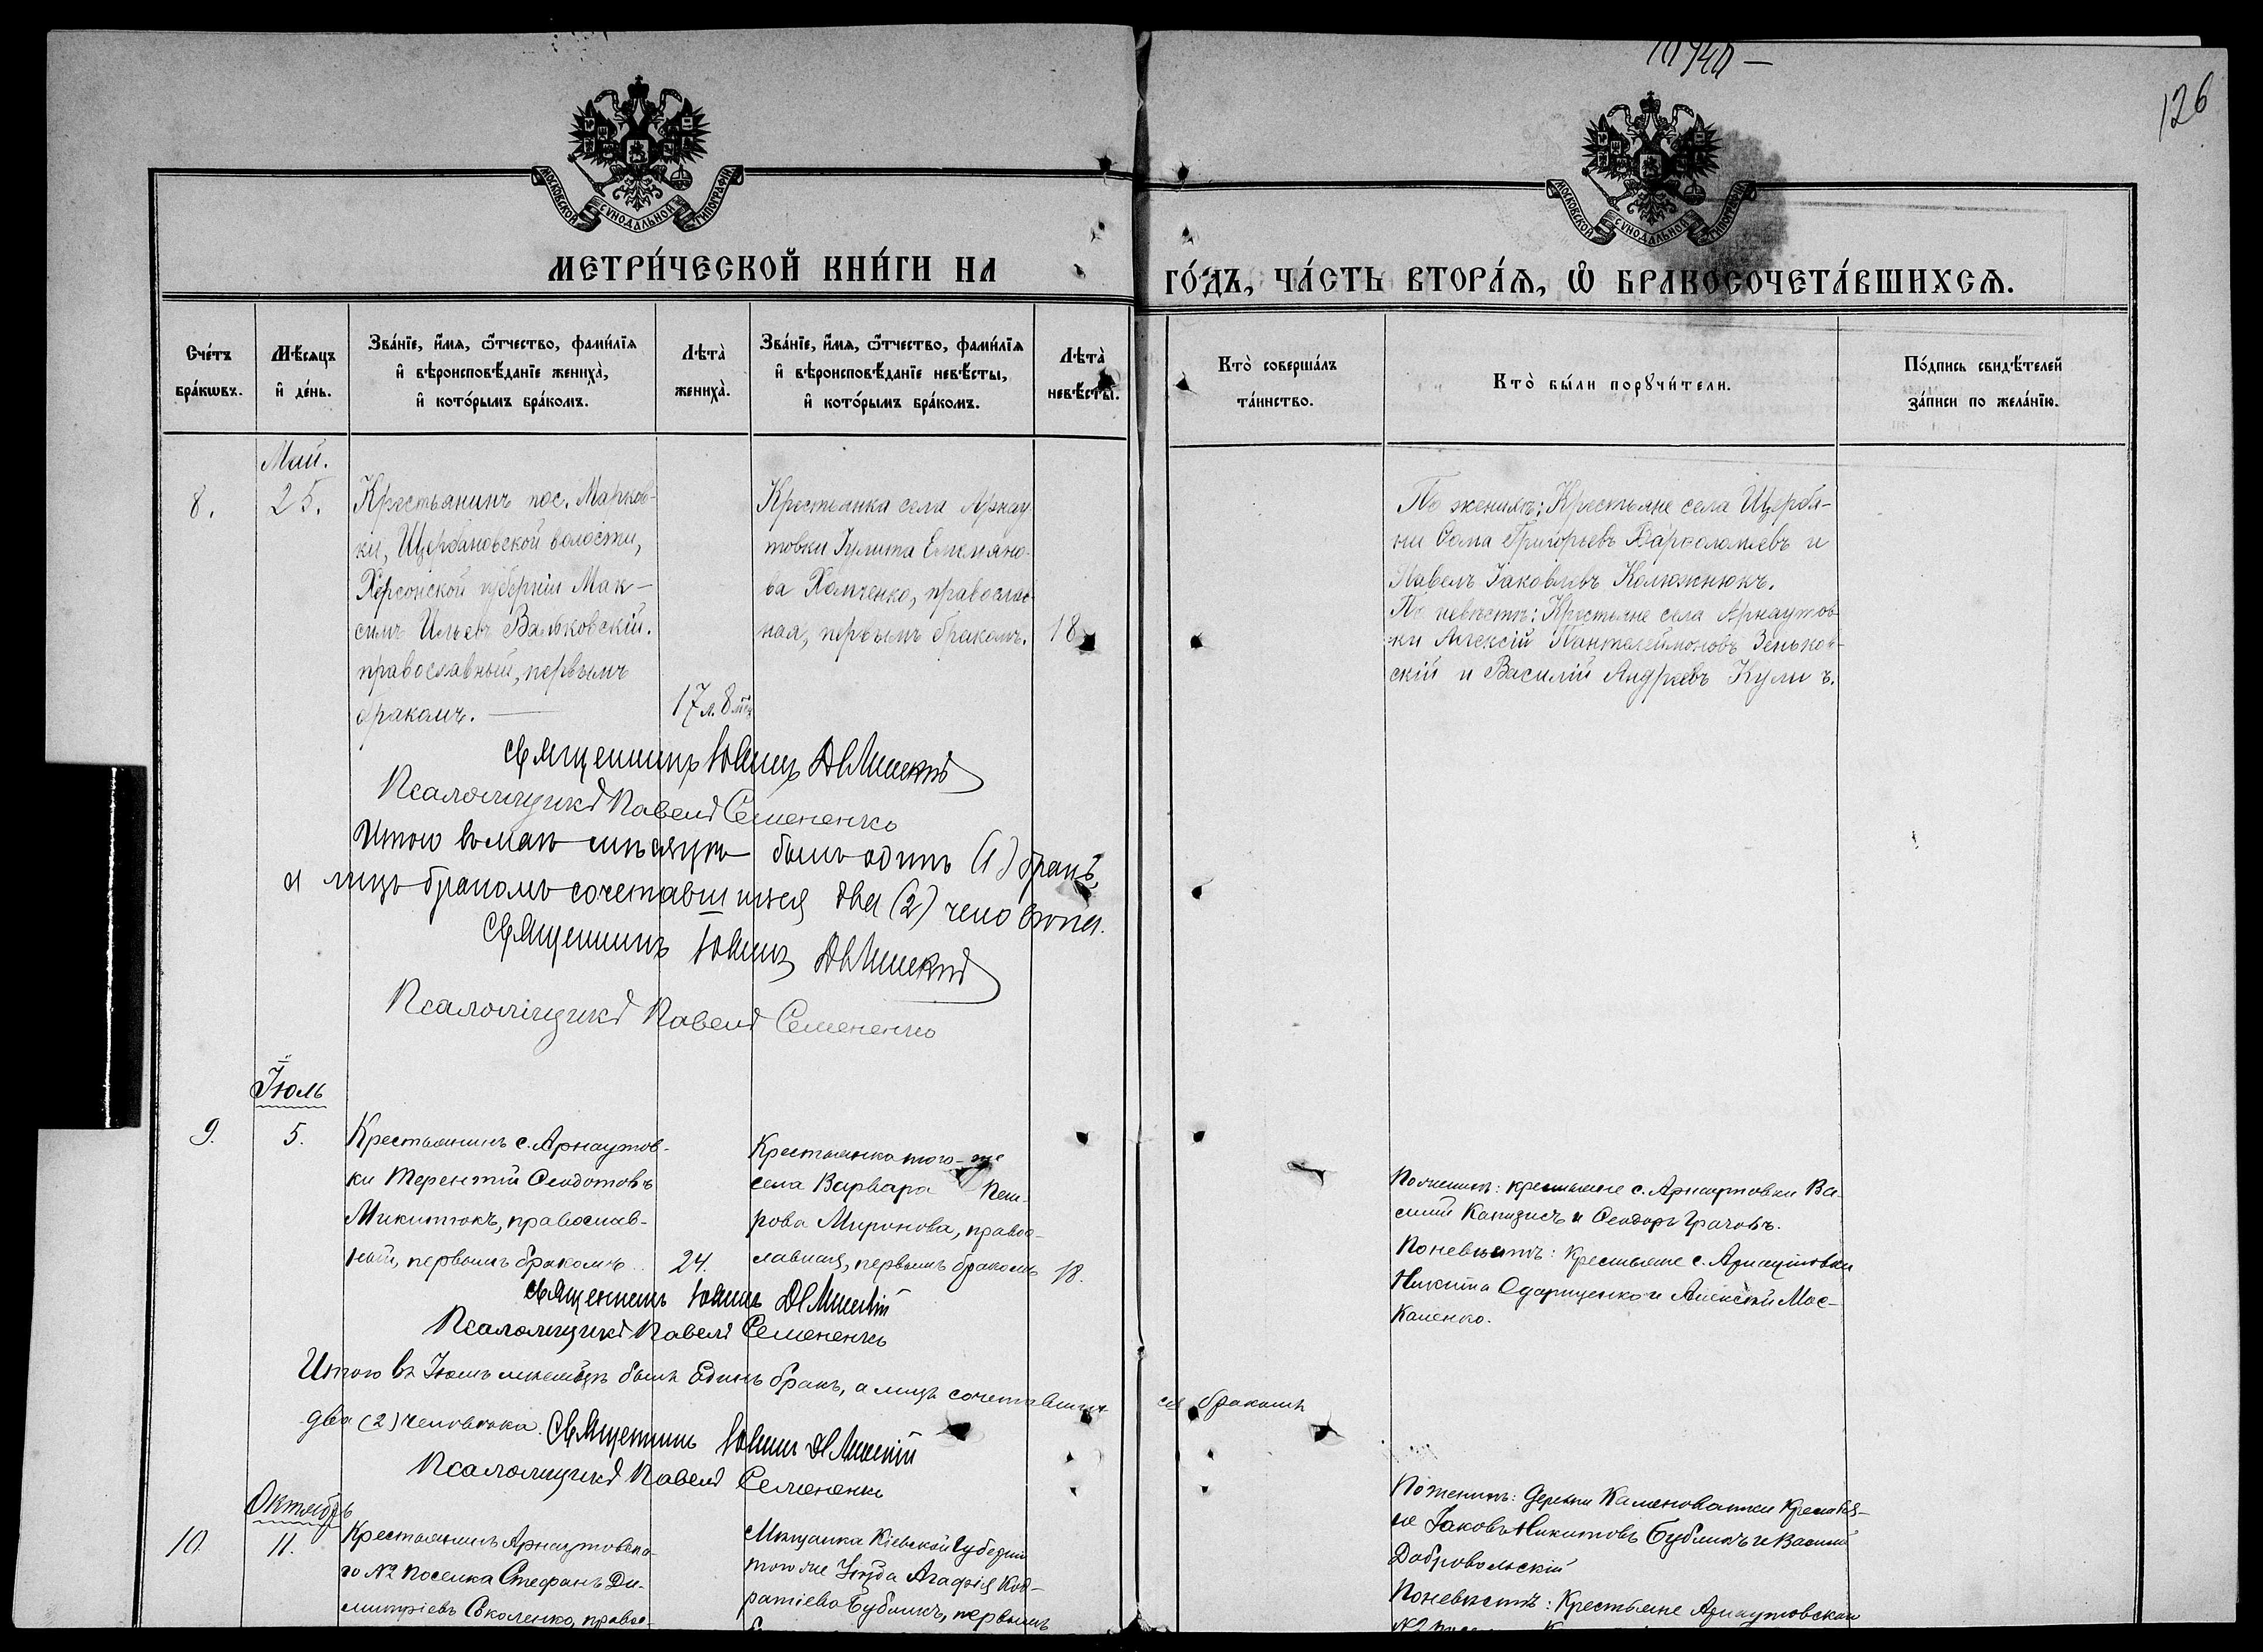 10940 —
126
МОСКОВСКОЙ СѴНОДАЛЬНОЙ ТИПОГРАФІИ
МОСКОВСКОЙ СѴНОДАЛЬНОЙ ТИПОГРАФІИ
МЕТРИ́ЧЕСКОЙ КНИ́ГИ НА
ГО́ДЪ, ЧА́СТЬ ВТОРА́Ѧ, Ѡ҆ БРАКОСОЧЕТА́ВШИХСѦ.
Сче́тъ
бра́кѡвъ.
Мѣ́сяцъ
и҆ де́нь.
Зва́нїе, и҆́мѧ, ѻ҆́тчество, фами́лїѧ
и҆ вѣроисповѣ́данїе жениха̀,
и҆ кото́рымъ бра́комъ.
Лѣ́та̀
жениха̀.
Зва́нїе, и҆́мѧ, ѻ҆́тчество, фами́лїѧ
и҆ вѣроисповѣ́данїе невѣ́сты,
и҆ кото́рымъ бра́комъ.
Лѣ́та̀
невѣ́сты.
Кто̀ соверша́лъ
та́инство.
Кто̀ бы́ли порꙋчи́тели.
По́дпись свидѣ́телей
за́писи по жела́нїю.
Май.
8.
25.
Крестьянинъ пос. Марков-
ки, Щербановской волости,
Херсонской губерніи Мак-
симъ Ильевъ Вальковскій.
православный, первымъ
бракомъ. —
17 л. 8 м
Крестьянка села Арнау
товки Іулита Емельяно-
ва Хомченко, православ-
ная, первымъ бракомъ.
18
По женихѣ: Крестьяне села Щерба-
ни Ѳома Григорьевъ Варфоломеевъ и
Павелъ Іаковлевъ Калюжнюкъ.
По невѣстѣ: Крестьяне села Арнаутов-
ки Алексій Пантелеймоновъ Зеньков-
скій и Василій Андреевъ
Священникъ Іоаннъ
Псаломщикъ Павелъ Семененко
Итого въ маѣ мѣсяцѣ былъ одинъ (1) бракъ,
а лицъ бракомъ сочетавшихся два (2) человѣка.
Священникъ Іоаннъ
Псаломщикъ Павелъ Семененко
Іюль
9.
5.
Крестьянинъ с. Арнаутов-
ки Терентій Ѳеодотовъ
Микитюкъ, православ-
ный, первымъ бракомъ
24.
Крестьянка того-же
села Варвара Пет-
рова Миронова, право-
славная, первымъ бракомъ
18.
По женихѣ: крестьяне с. Арнаутовки Ва-
силій и Ѳеодоръ Грачовъ.
По невѣстѣ: Крестьяне с. Арнаутовки
Никита Одарщенко и Алексѣй Мос-
каленко.
Священникъ Іоаннъ
Псаломщикъ Павелъ Семененко
Итого въ Іюлѣ мѣсяцѣ былъ Единъ бракъ, а лицъ сочетавших
ся бракомъ
два (2) человѣка. Священникъ Іоаннъ
Псаломщикъ Павелъ Семененко
Октябрь
10.
11.
Крестьянинъ Арнаутовска-
го №2 поселка Стефанъ Ди-
митріевъ Соколенко, право-
Мѣщанка Кіевской Губерніи
того же Уѣзда Агафія Код-
ратіева Бубликъ, первымъ
По женихѣ: деревни Каменоватки Крестья-
не Іаковъ Никитовъ Бубликъ и Василій
Добровольскій
По невѣстѣ: Крестьяне Арнаутовскаго
№2